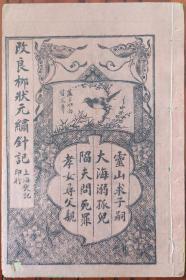 改良柳狀元繡針記
上海
印行
靈山求子嗣
大海溺孤兒
陷夫問死罪
孝女尋父親